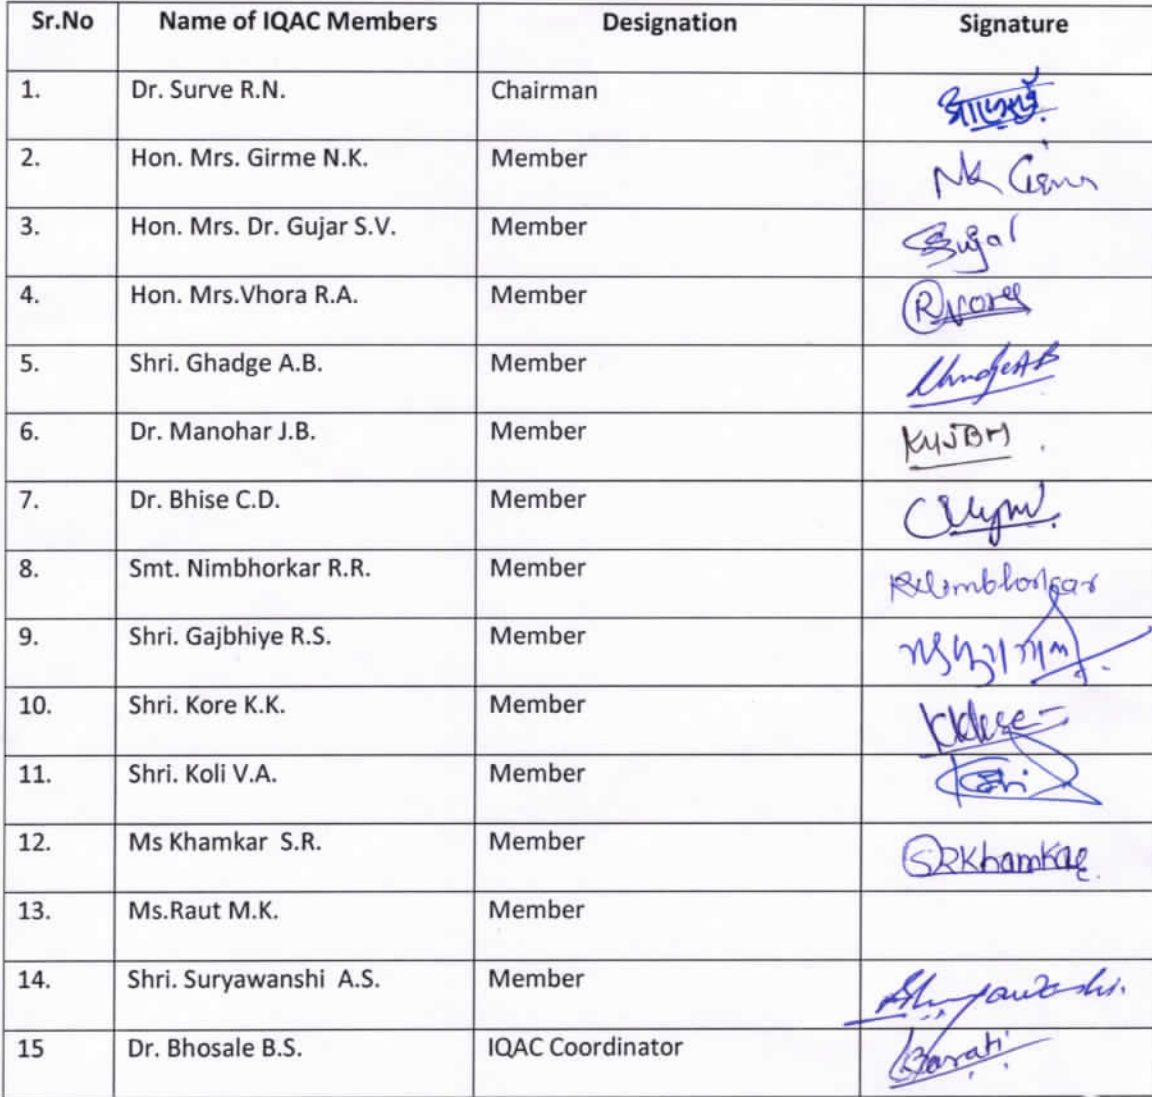 Sr.No Name of IQAC Members Designation Signature
1. Dr. Surve R.N. Chairman
2. Hon. Mrs. Girme N.K. Member NK
3. Hon. Mrs. Dr. Gujar S.V. Member Gujar
4. Hon. Mrs.Vhora R.A. Member
5. Shri. Ghadge A.B. Member
6. Dr. Manohar J.B. Member
7. Dr. Bhise C.D. Member
8. Smt. Nimbhorkar R.R. Member
9. Shri. Gajbhiye R.S. Member
10. Shri. Kore K.K. Member
11. Shri. Koli V.A. Member
12. Ms Khamkar S.R. Member SRKhamkar
13. Ms.Raut M.K. Member
14. Shri. Suryawanshi A.S. Member
15 Dr. Bhosale B.S. IQAC Coordinator